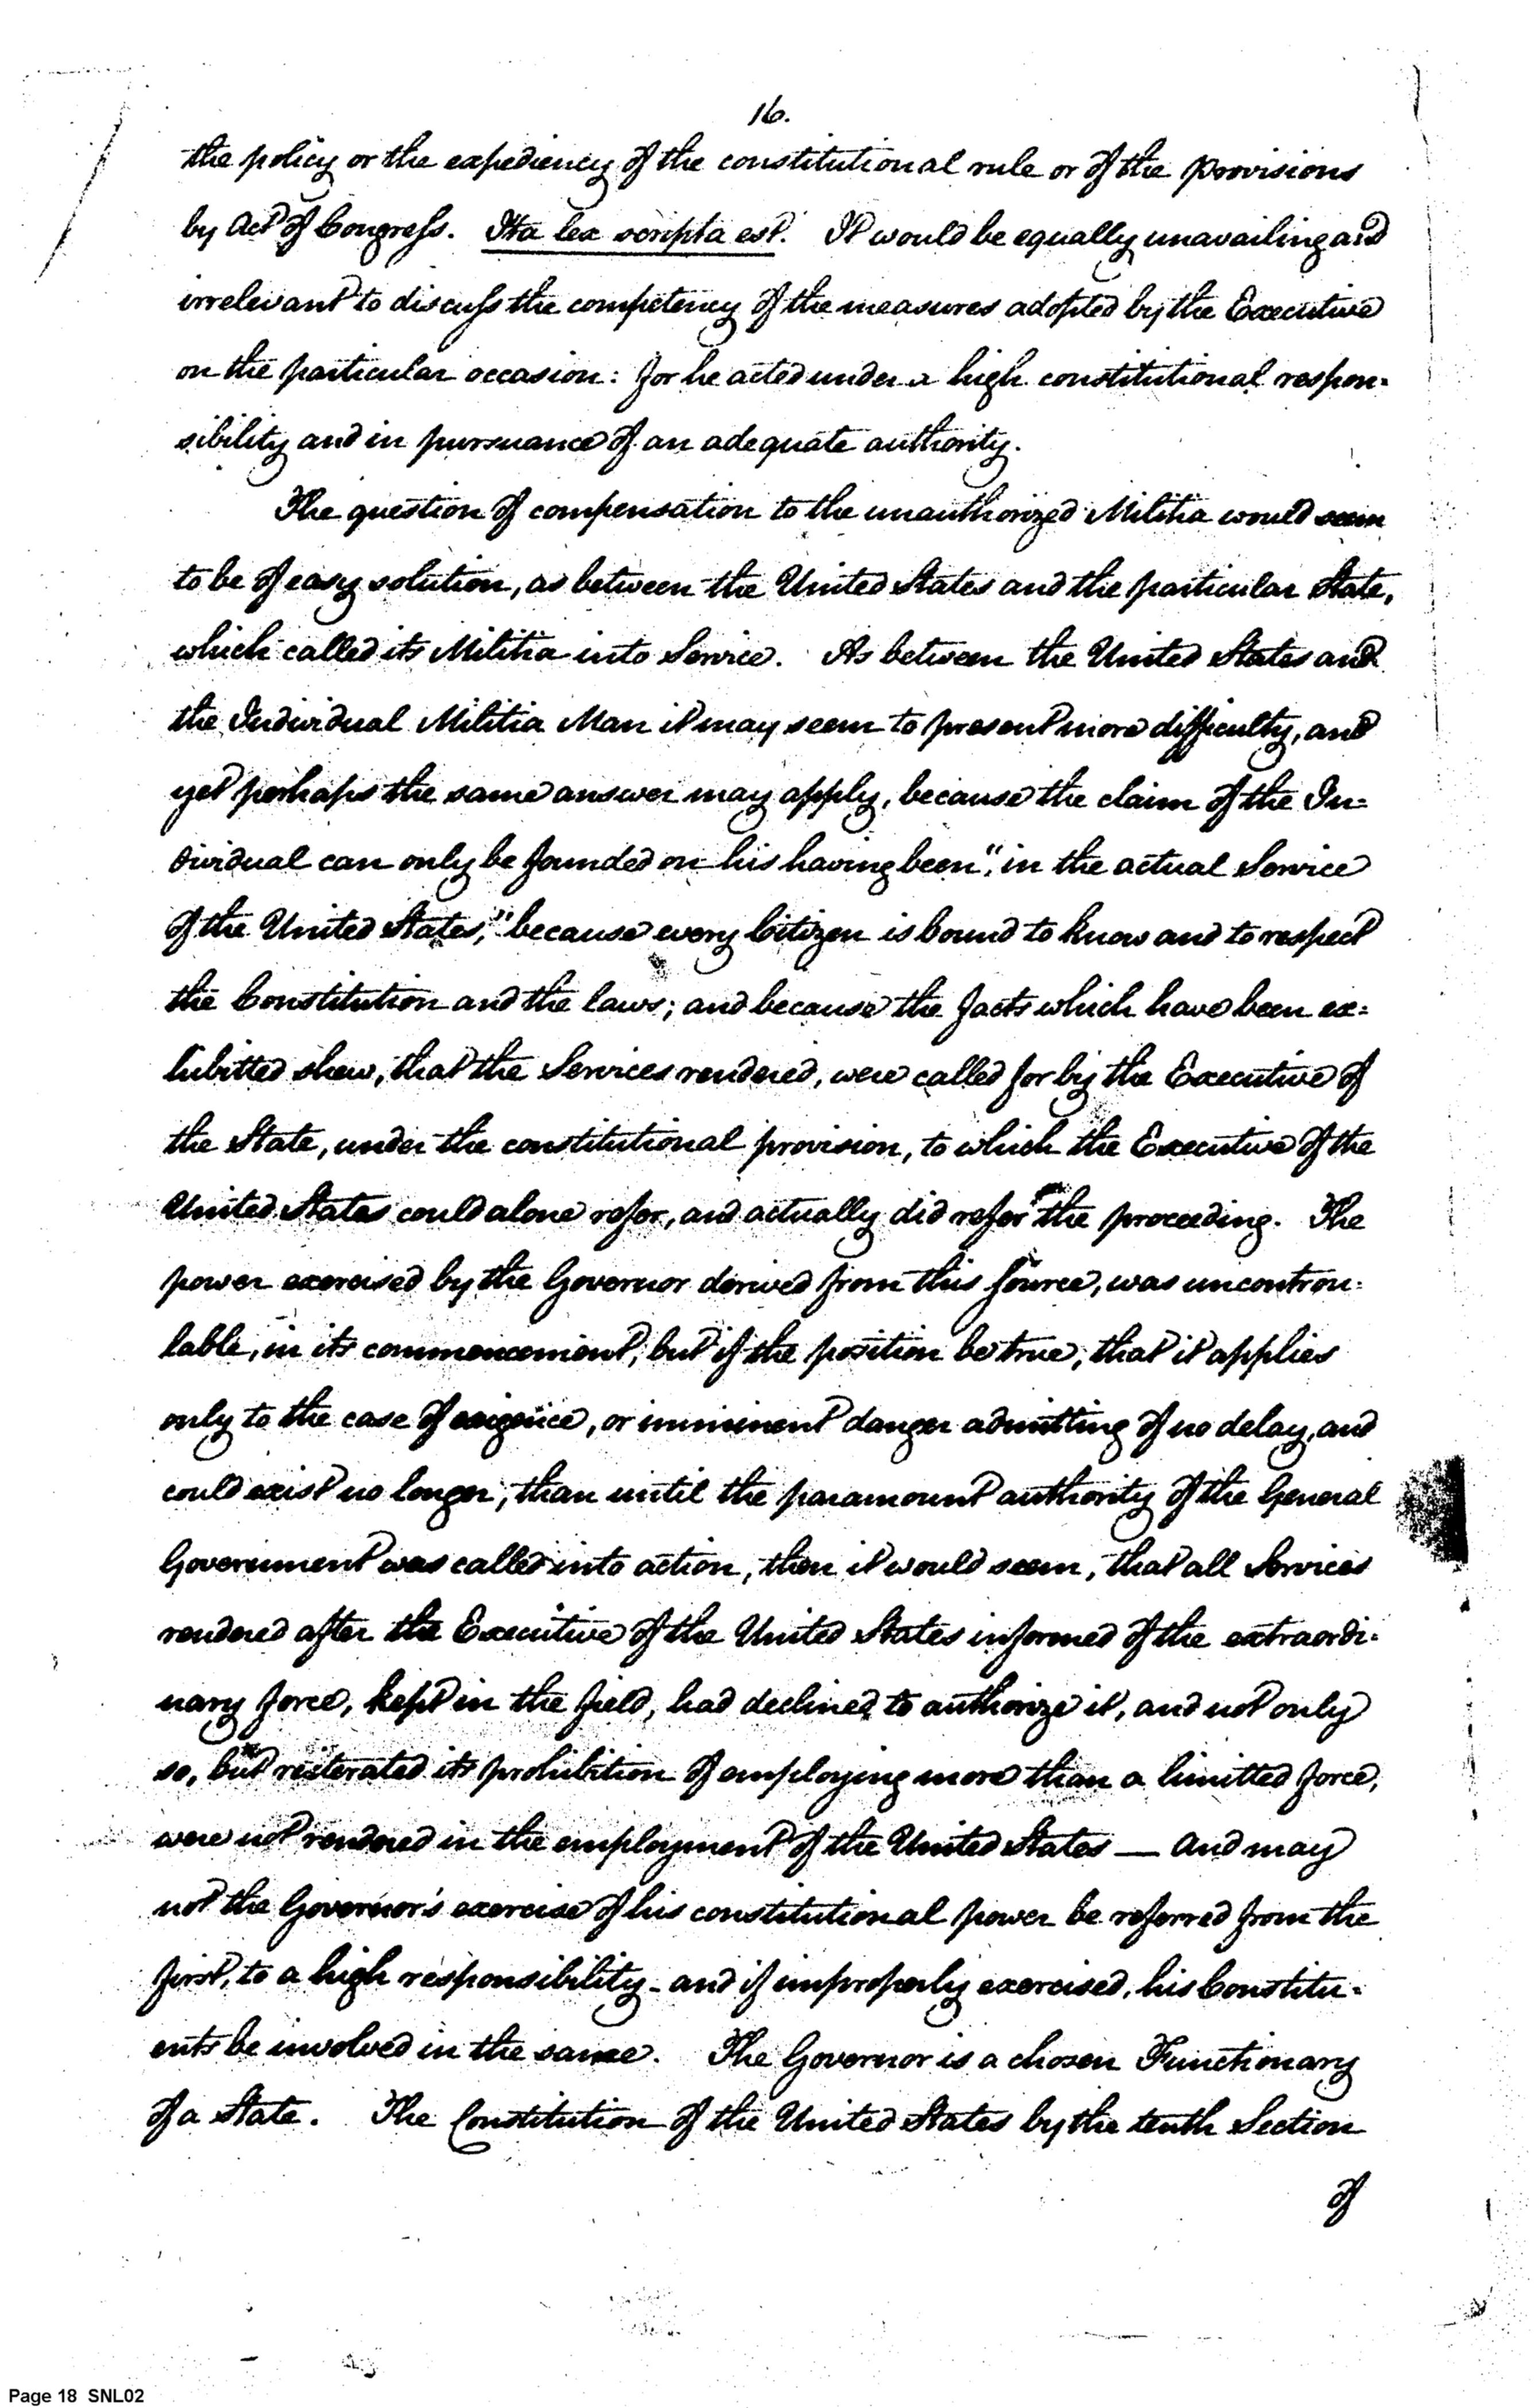 16.
the policy or the expediency of the constitutional rule or of the provisions
by Act of Congress. Ita lex scripta est. It would be equally unavailing and
irrelevant to discuss the competency of the measures adopted by the Executive
on the particular occasion: for he acted under a high constitutional respon-
sibility and in pursuance of an adequate authority.
The question of compensation to the unauthorized Militia would seem
to be of easy solution, as between the United States and the particular State,
which called its Militia into Service. As between the United States and
the Individual Militia Man it may seem to present more difficulty, and
yet perhaps the same answer may apply, because the claim of the In=
dividual can only be founded on his having been "in the actual Service
of the United States," because every Citizen is bound to know and to respect
the Constitution and the laws; and because the facts which have been ex=
hibitted shew, that the Services rendered, were called for by the Executive of
the State, under the constitutional provision, to which the Executive of the
United States could alone refer, and actually did refer the proceeding. The
power exercised by the Governor derived from this source, was uncontrou=
lable, in its commencement; but if the position be true, that it applies
only to the case of exigence, or imminent danger admitting of no delay, and
could exist no longer, than until the paramount authority of the General
Government was called into action, then it would seem, that all Services
rendered after the Executive of the United States informed of the extraordi-
nary force, kept in the field, had declined to authorize it, and not only
so, but reiterated its prohibition of employing more than a limitted force,
were not rendered in the employment of the United States — And may
not the Governor's exercise of his constitutional power be referred from the
first, to a high responsibility - and if improperly exercised, his Constitu-
ents be involved in the same. The Governor is a chosen Functionary
of a State. The Constitution of the United States by the tenth Section
of
Page 18 SNL02